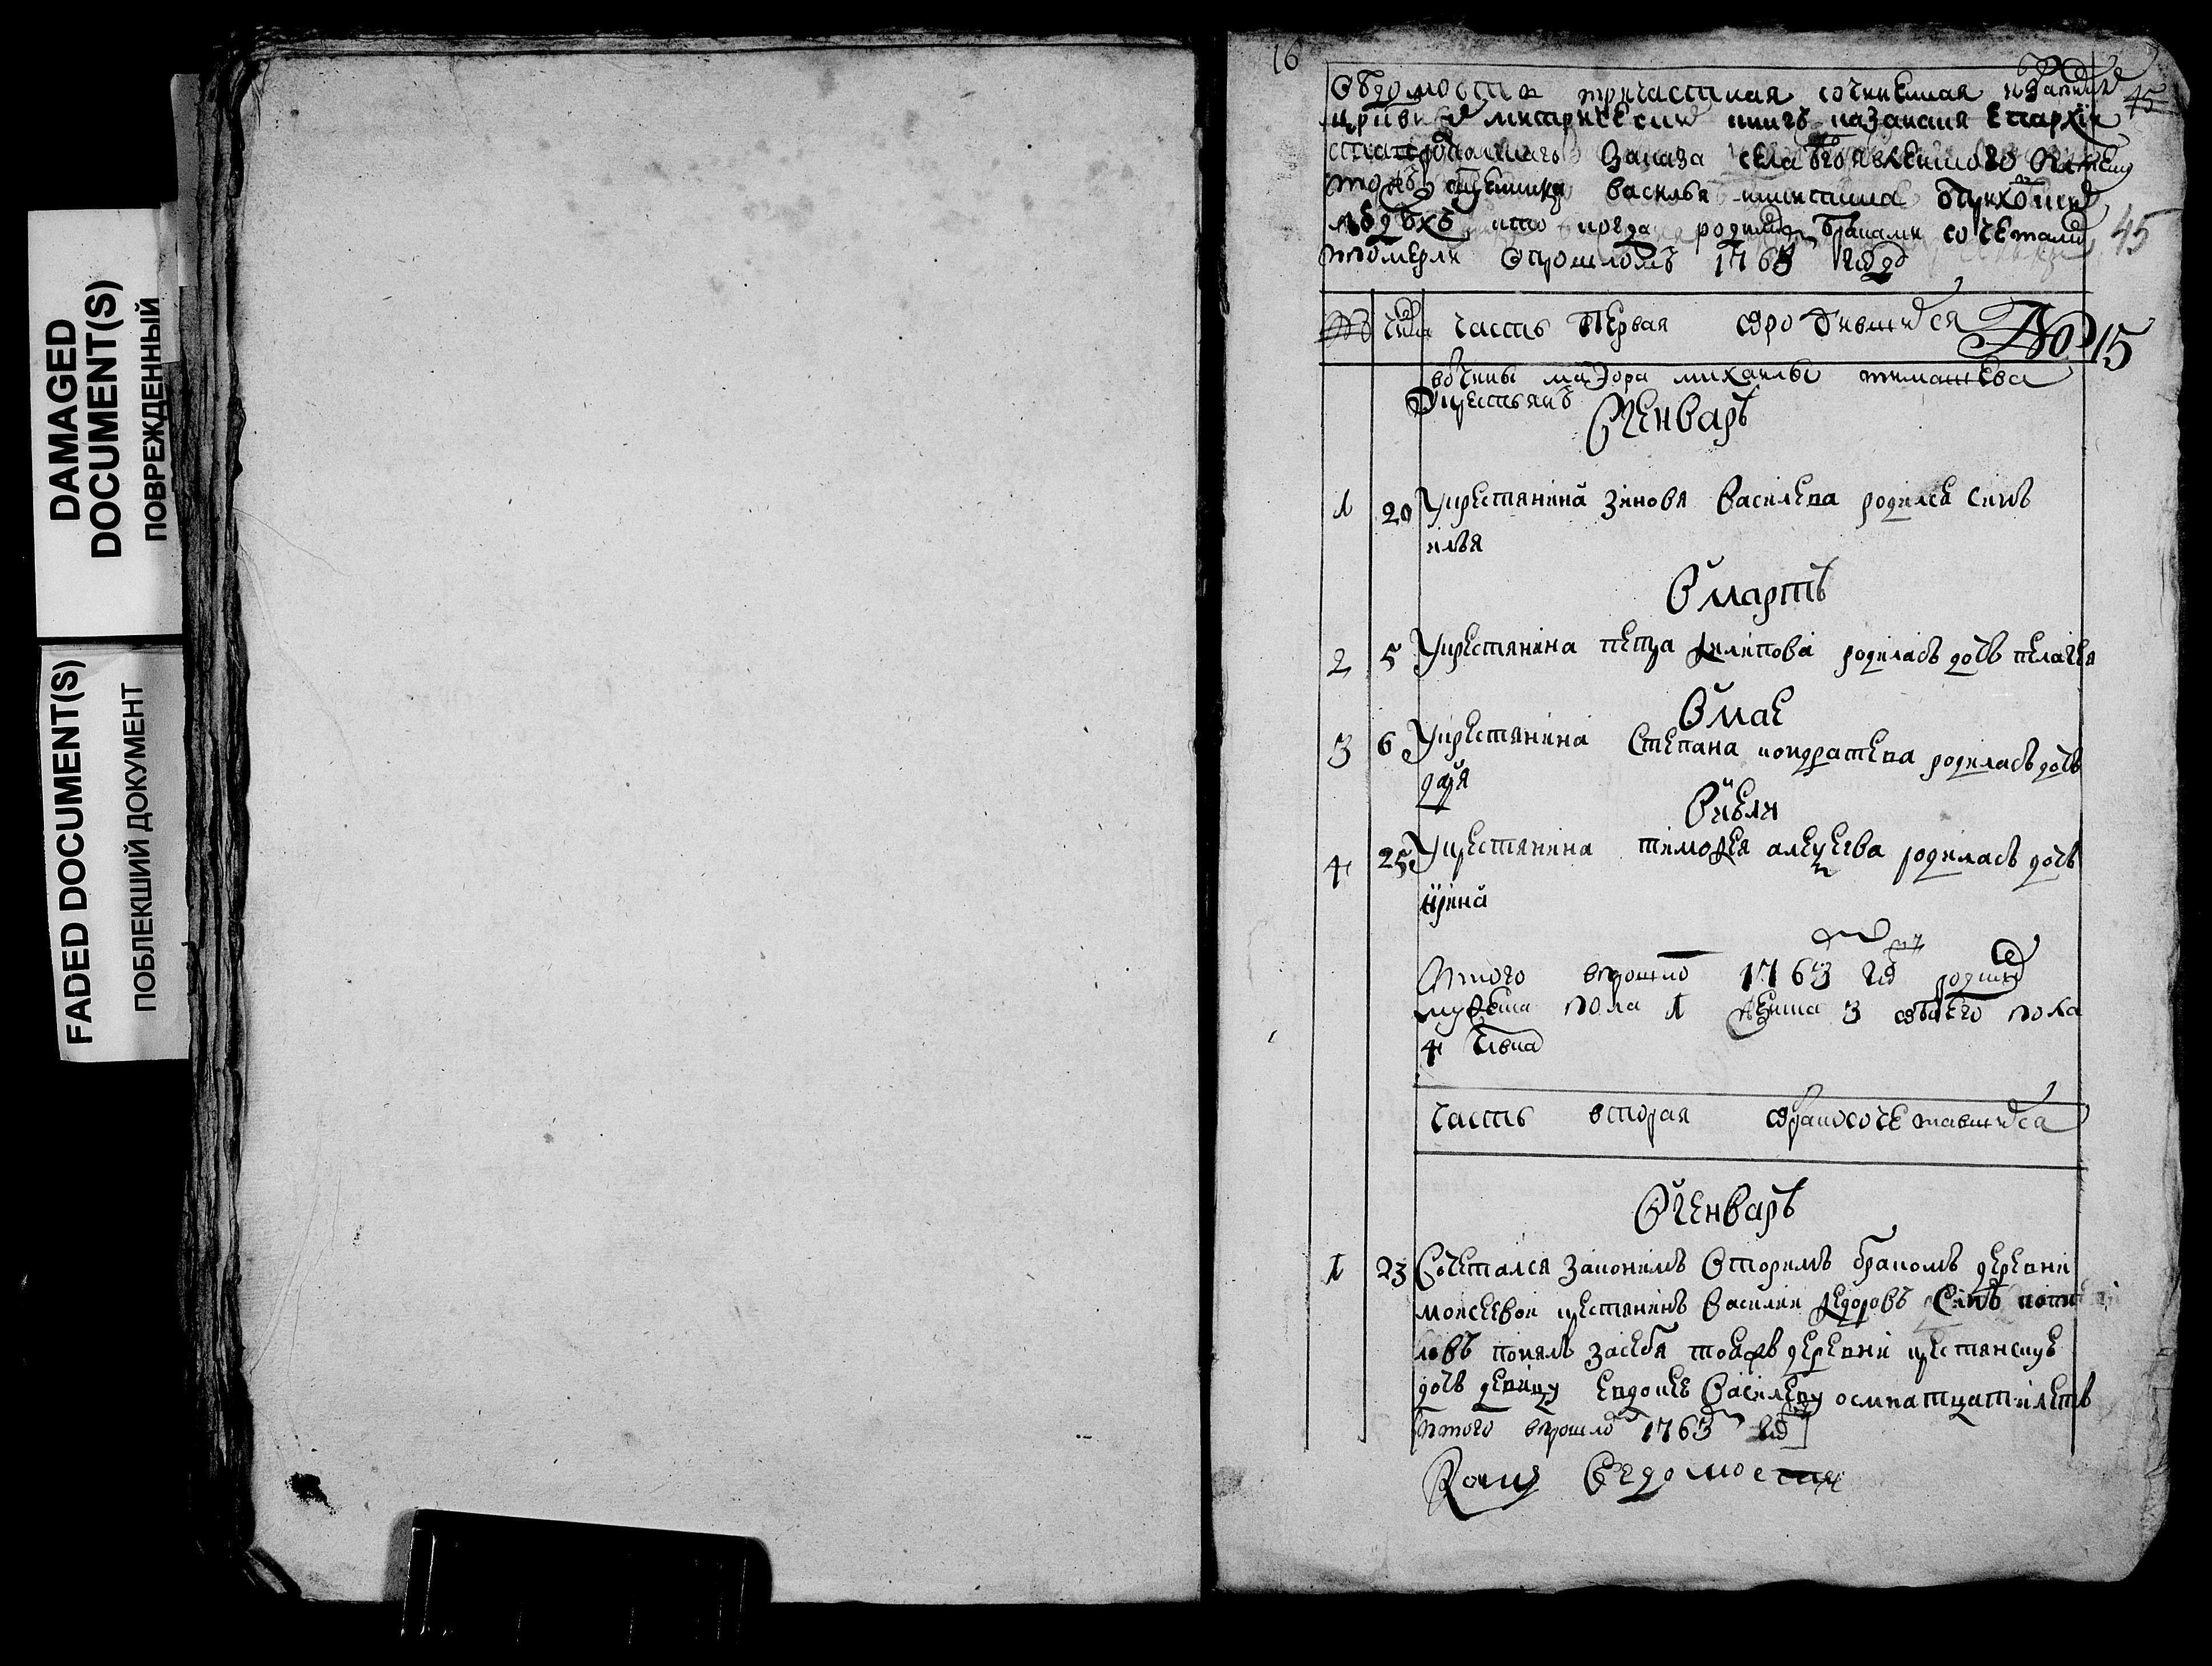 DAMAGED
DOCUMENT(S)
ПОВРЕЖДЕННЫЙ
FADED DOCUMENT(S)
ПОБЛЕКШИЙ ДОКУМЕНТ
16
Ведомость тричастная сочиненная
45
метрических книгъ казанския епархии
заказа села Богоявленского
священника василья никитина
людехъ кто когда родился браками сочетались
померли впрошломъ 1763 году
45
№ числа часть первая ородившихся
№ 15
вотчины маэора михаилы тимашева
крестьянъ
Вгенваръ
1 20 Укрестянина зиновя василева родился синъ
илья
Вмартъ
2 5 Укрестянина петра филипова родиласъ дочъ пелагея
Вмае
3 6 Укрестянина Степана кондратева родиласъ дочъ
даря
Виюли
4 25 Укрестянина тимофея алексеева родиласъ дочъ
ирина
Итого впрошло 1763 годе родилось
мужеска пола 1 женска 3 обоего пола
4 члвка
часть вторая обракосочетавшихся
Вгенваръ
1 23 Сочетался законимъ вторимъ бракомъ деревни
моисеевои крестянинъ василии федоровъ синъ
понялъ засебя тояжъ деревни крестянскуе
дочъ девицу евдокею василеву осмнатцатилетъ
Итого впрошло 1763 годе
Копия Ведомости